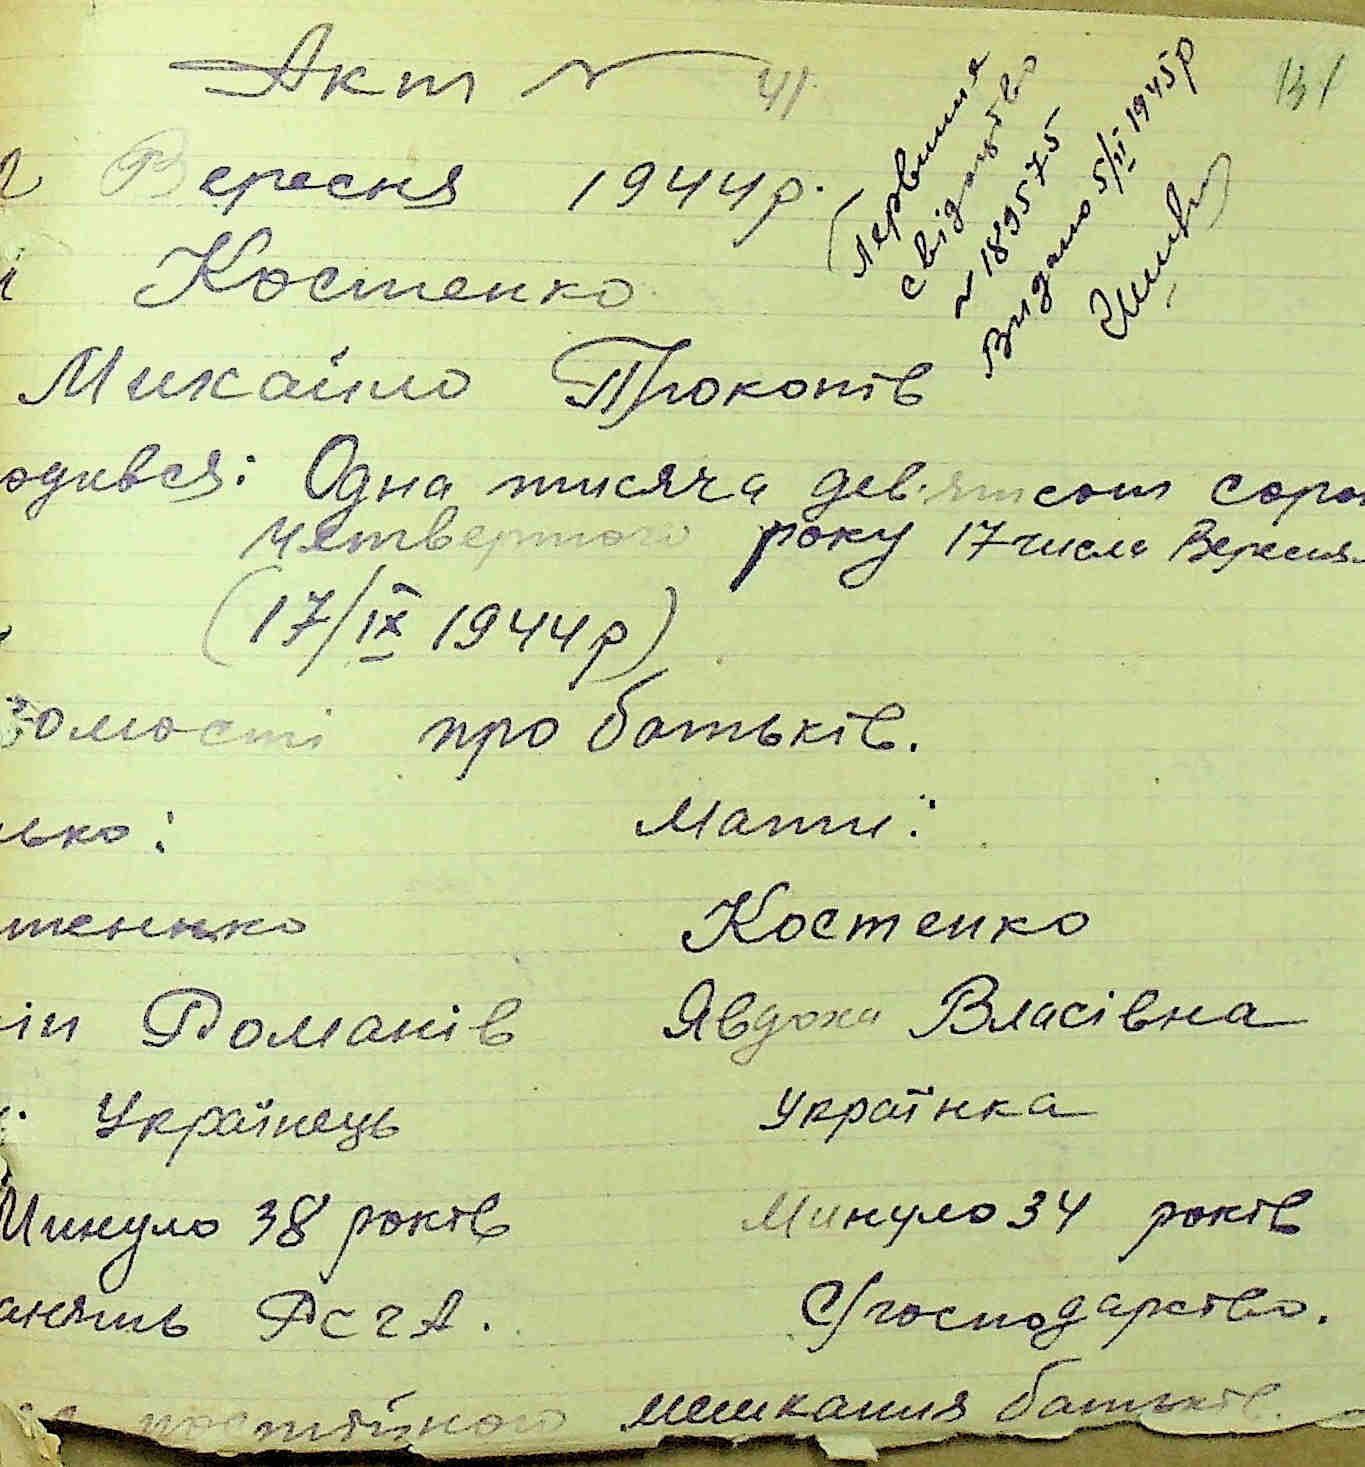 Акт № 41
131
Первишня
свідоцтво
№ 189575
Видано 5/ІІ 1945р
Вересня 1944р.
Костенко
Михайло Прокопів
одився: Одна тисяча дев'ятсот соро
четвертого року 17 числа Вересня
(17/ІХ 1944р)
домості про батьків.
ько: Мати:
тенко Костенко
іп Романів Явдоха Власівна
Українець Українка
Минуло 38 років Минуло 34 років
анять РсчА. С/господарство.
постійного мешкання батьків.